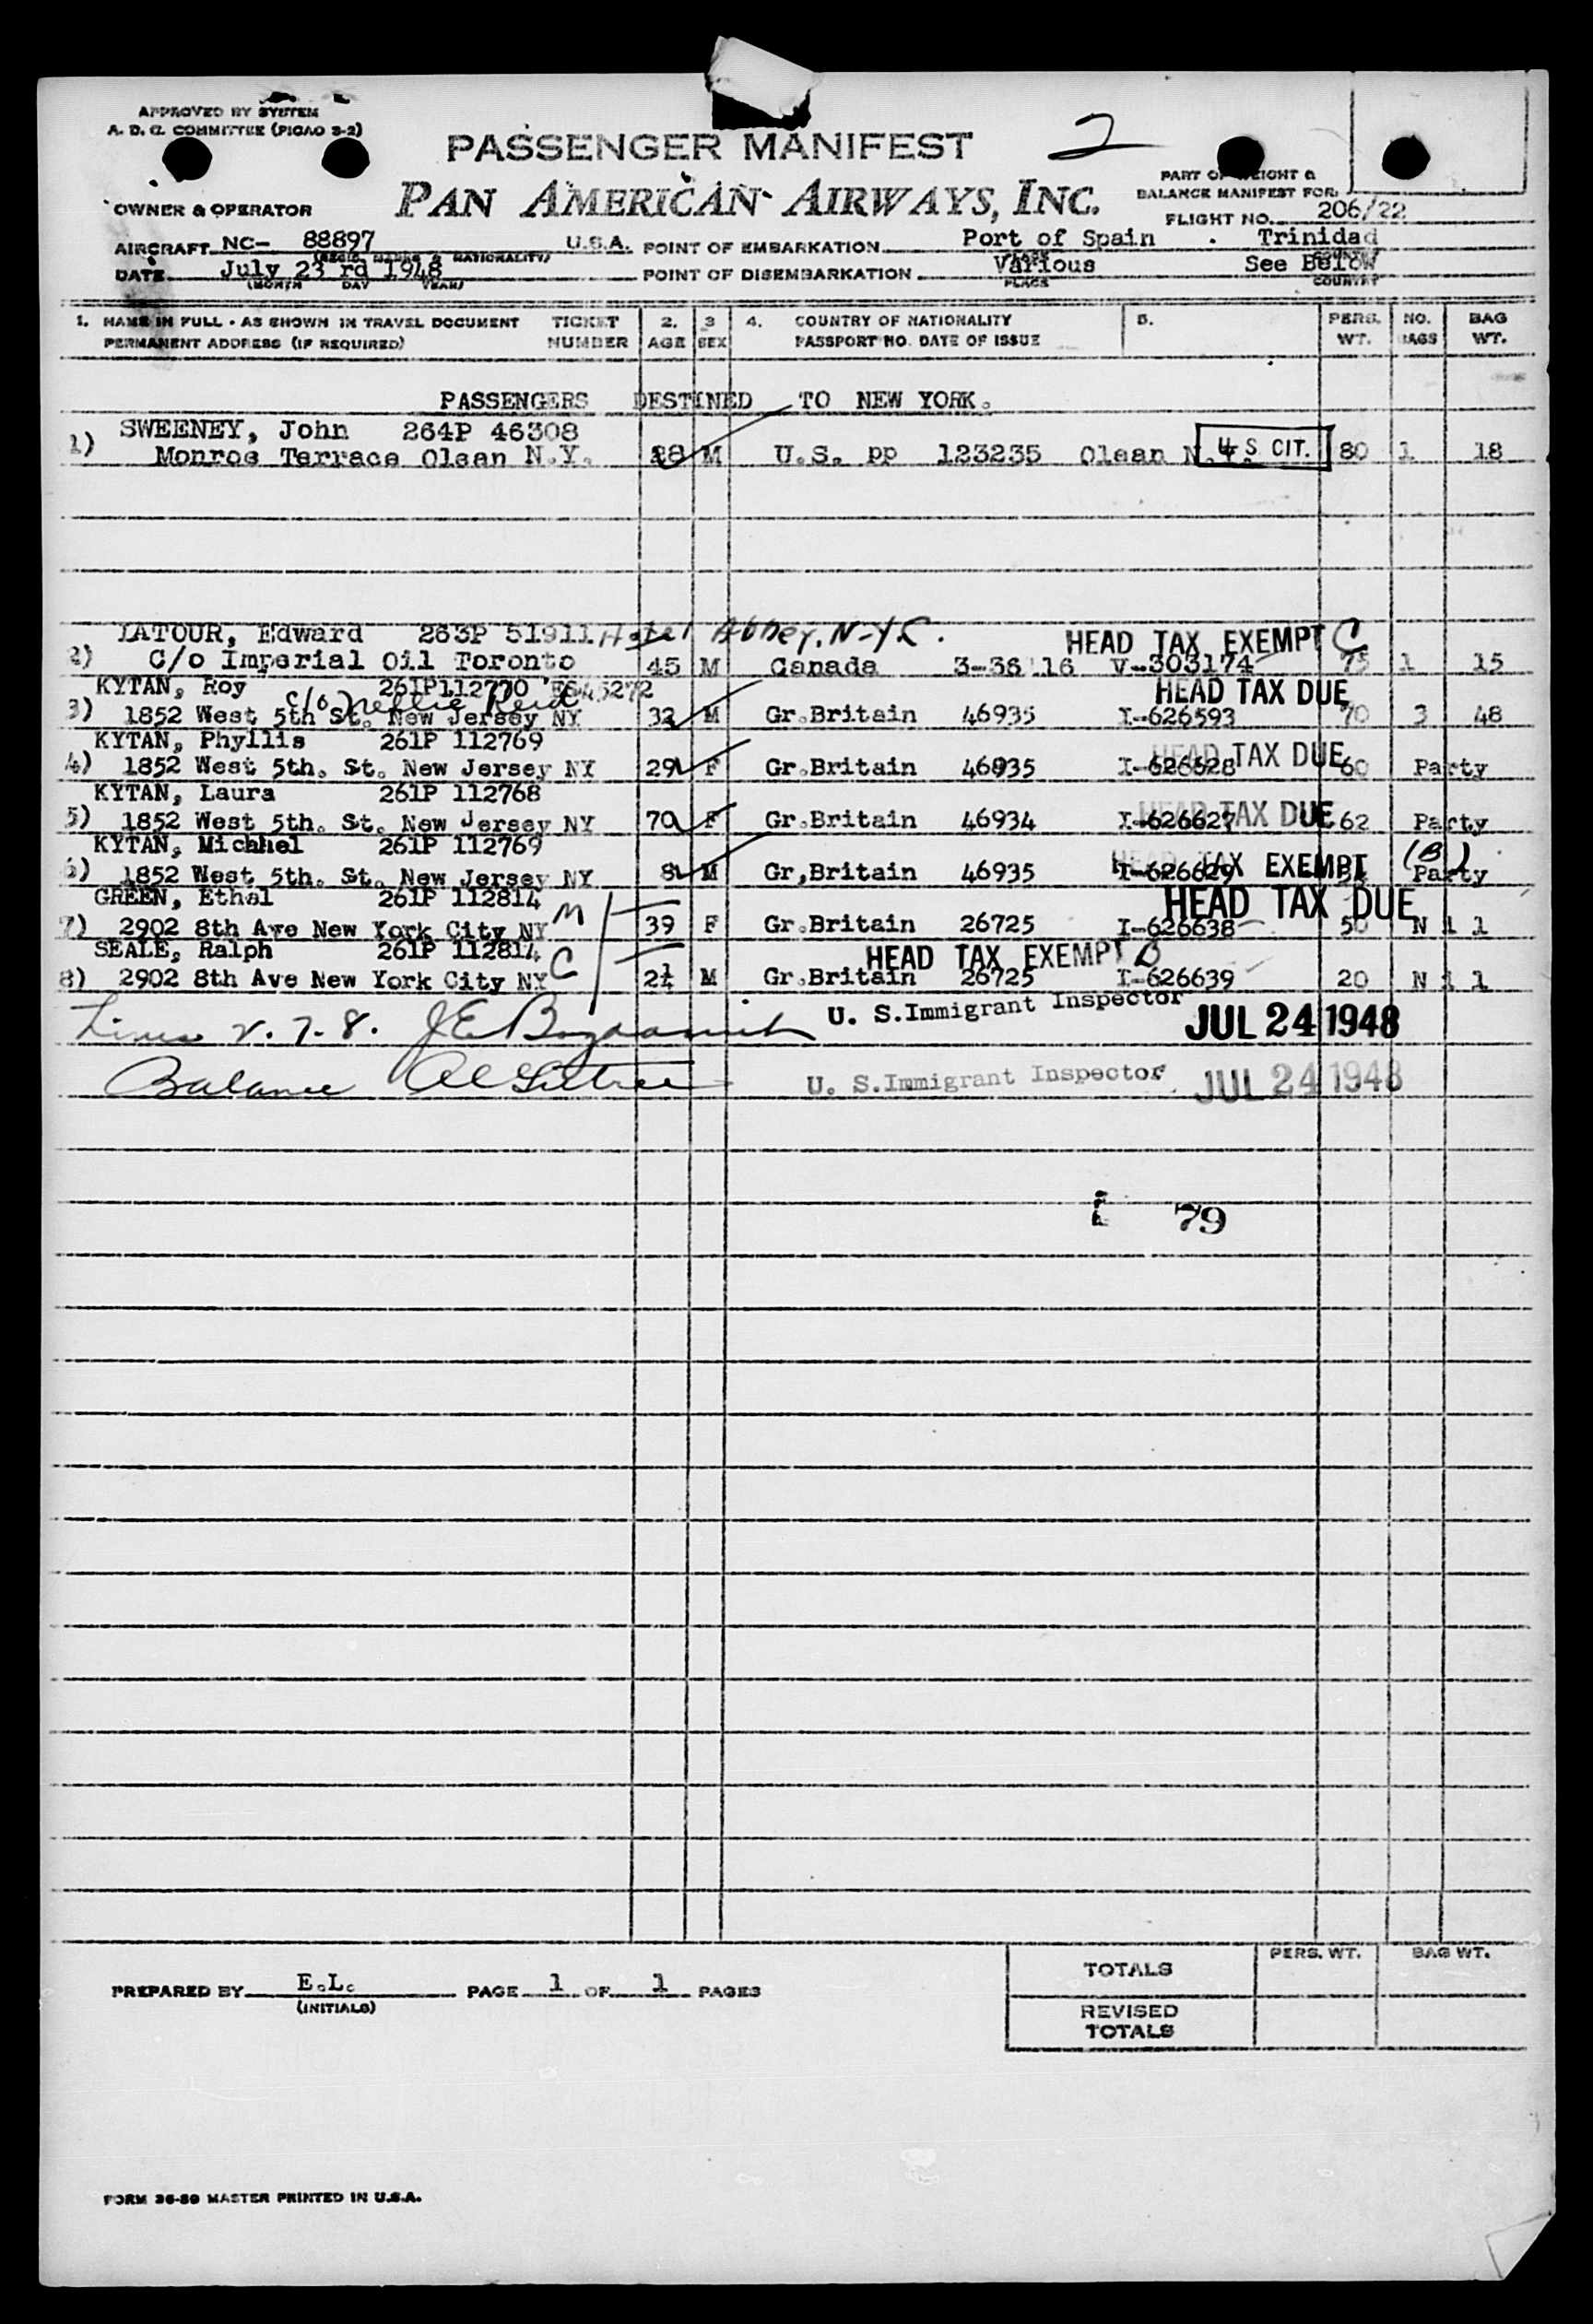 APPROVED BY SYSTEM
A. D. G. COMMITTEE (PICAO S-2)
PASSENGER MANIFEST
2
PAN AMERICAN AIRWAYS, INC.
PART OF WEIGHT &
BALANCE MANIFEST FOR:
FLIGHT NO. 206/22
OWNER & OPERATOR
AIRCRAFT NC- 88897 U.S.A. POINT OF EMBARKATION Port of Spain . Trinidad
(REGIS. MARKS & NATIONALITY)
DATE July 23 rd 1948 POINT OF DISEMBARKATION Various See Below
(MONTH DAY YEAR) PLACE COUNTRY
1. NAME IN FULL - AS SHOWN IN TRAVEL DOCUMENT TICKET 2. 3 4. COUNTRY OF NATIONALITY 5. PERS. NO. BAG
PERMANENT ADDRESS (IF REQUIRED) NUMBER AGE SEX PASSPORT NO. DATE OF ISSUE WT. BAGS WT.
PASSENGERS DESTINED TO NEW YORK.
SWEENEY, John 264P 46308
1) Monroe Terrace Olean N.Y. 28 M U.S. pp 123235 Olean N.Y. U S CIT. 80 1 18
LATOUR, Edward 263P 51911 Hotel Abbey, N-Y.C. HEAD TAX EXEMPT C
2) C/o Imperial Oil Toronto 45 M Canada 3-38 16 V-303174 75 1 15
KYTAN, Roy 261P112770 HEAD TAX DUE
c/o Nellie Reid
3) 1852 West 5th St. New Jersey NY 32 M Gr.Britain 46935 I-626593 70 3 48
KYTAN, Phyllis 261P 112769 HEAD TAX DUE
4) 1852 West 5th. St. New Jersey NY 29 F Gr.Britain 46935 I-626628 60 Party
KYTAN, Laura 261P 112768 HEAD TAX DUE
5) 1852 West 5th. St. New Jersey NY 70 F Gr.Britain 46934 I-626627 62 Party
KYTAN, Michhel 261P 112769 HEAD TAX EXEMPT (B)
6) 1852 West 5th. St. New Jersey NY 8 M Gr,Britain 46935 I-626629 Party
GREEN, Ethel 261P 112814 M HEAD TAX DUE
7) 2902 8th Ave New York City NY 39 F Gr.Britain 26725 I-626638 50 N i l
SEALE, Ralph 261P 112814 C HEAD TAX EXEMPT B
8) 2902 8th Ave New York City NY 2½ M Gr.Britain 26725 I-626639 20 N i l
Lines 2. 7. 8. U. S. Immigrant Inspector JUL 24 1948
Balance U. S. Immigrant Inspector JUL 24 1948
79
PREPARED BY E.L. PAGE 1 OF 1 PAGES
(INITIALS)
TOTALS PERS. WT. BAG WT.
REVISED
TOTALS
FORM 36-80 MASTER PRINTED IN U.S.A.